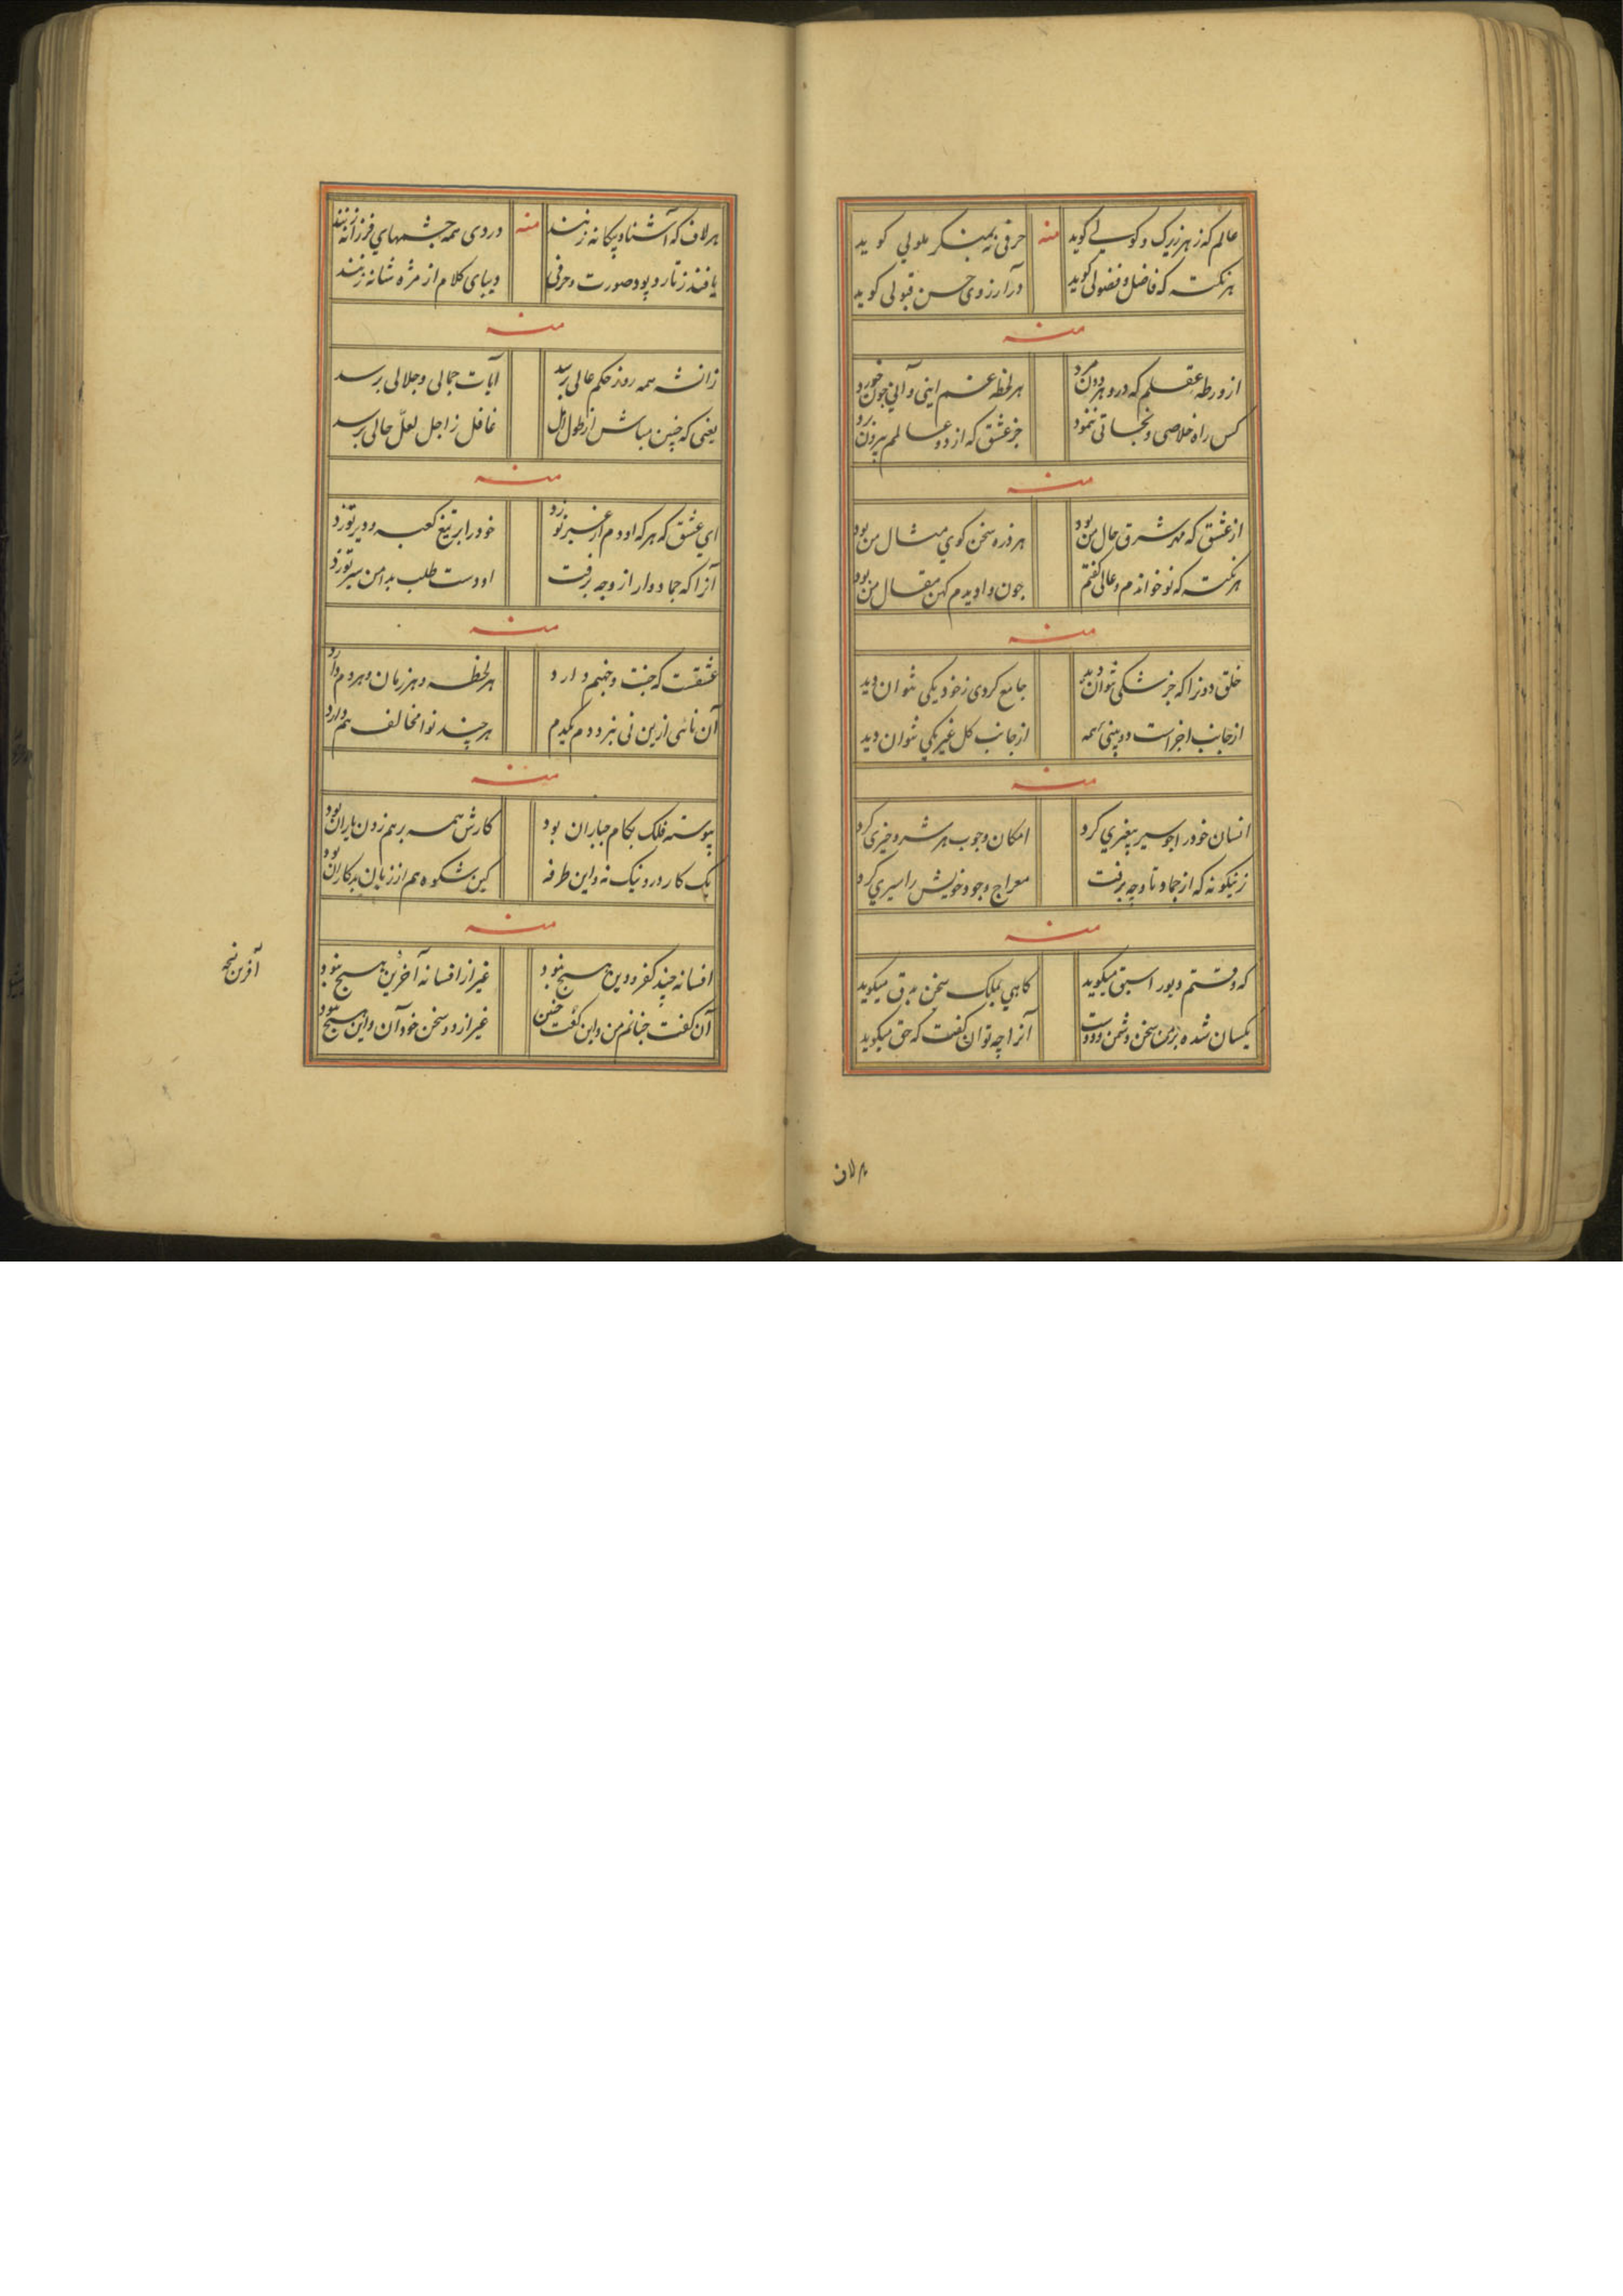 عالم که ز هر زیرک و کولی گوید منه حرفی نه بمنکر ملولی گوید
هر نکته که فاضل و فضولی گوید در آرزوی حسن قبولی گوید
منه
از ورطه عقلم که درو هر دون مرد هر لحظه غم اینی و آنی چون خورد
کس راه خلاصی و نجاتی ننمود جز عشق که از دو عالمم بیرون برد
منه
از عشق که مهر مشرق حال من بود هر ذره سخن گوی مثال من بود
هر نکته که نو خواندم و عالی گفتم چون وا دیدم کهن مقال من بود
منه
خلق دو نرا که جز شکی نتوان دید جامع گردی ز خود یکی نتوان دید
از جانب اجزاست دو بینی همه از جانب کل غیر یکی نتوان دید
منه
انسان خود را چو سیر پیغمبری کرد امکان وجوب هر شر و خیری کرد
زینگونه که از جماد تا وجه برفت معراج وجود خویش را سیری کرد
منه
که دفتم و بور اسبق میگوید کاهی بملک سخن بدق میگوید
یکسان شده بر من سخن دشمن و دوست آنرا چه توان گفت که حق میگوید
هر لاف
هر لاف که آشنا و بیگانه زنند منه در وی همه چشمهای فرزانه زنند
بافند ز تار و پود صورت و حرفی دیبای کلام از مژه شانه زنند
منه
زانشه همه روز حکم عالی برسد آیات جمالی و جلالی برسد
یعنی که چنین مباش از طول امل غافل ز اجل لعل حالی برسد
منه
ای عشق که هر که او دم از غیر تو زد خود را بر تیغ کعبه و دیر تو زد
آنرا که جماد وار از وجه برفت او دست طلب بدامن سیر تو زد
منه
عشقست که جنت و جهنم دارد هر لحظه و هر زمان و هر دم دارد
آن نائی ازین نی نبرد دم یکدم هر چند نوا مخالف هم دارد
منه
پیوسته فلک بکام جباران بود کارش همه بر هم زدن یاران بود
یک کار درو نیک نه و این طرفه کین شکوه هم از زبان بدکاران بود
منه
افسانه چند کفر و دین هیچ نبود غیر از افسانه آخرین هیچ نبود
آن گفت چنانم من و این گفت چنین غیر از دو سخن خود آن و این هیچ نبود